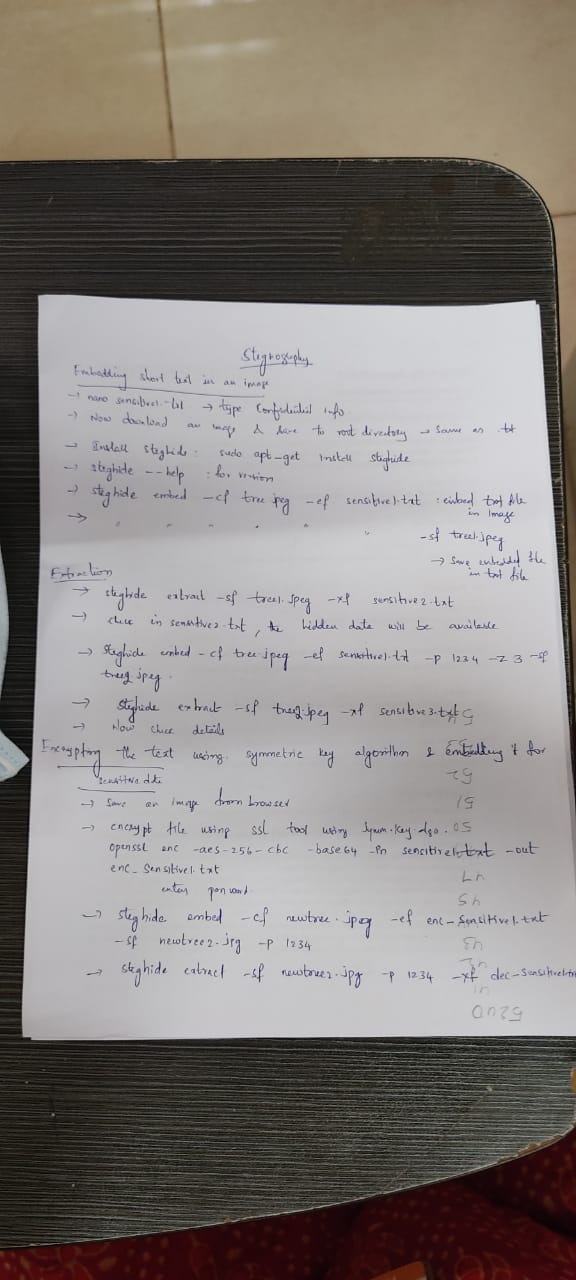 Stegnography
Embedding short text in an image
→ nano sensitive1.txt → type Confidential info.
→ Now download an image & save to root directory → same as .txt
→ Install steghide : sudo apt-get install steghide
→ steghide --help : for version
→ steghide embed -cf tree.jpeg -ef sensitive1.txt : embed text file
in Image
→ " " " " "
-sf tree1.jpeg
→ Save embedded file
in text file
Extraction
→ steghide extract -sf tree1.jpeg -xf sensitive2.txt
→ check in sensitive2.txt, the hidden data will be available
→ steghide embed -cf tree.jpeg -ef sensitive1.txt -p 1234 -z 3 -sf
tree2.jpeg.
→ steghide extract -sf tree2.jpeg -xf sensitive3.txt
→ Now check details
Encrypting the text using symmetric key algorithm & embedding it for
sensitive data
→ Save an image from browser
→ encrypt file using ssl tool using symm.key.algo.
openssl enc -aes-256-cbc -base64 -in sensitive1.txt -out
enc_sensitive1.txt
enter password
→ steghide embed -cf newtree.jpeg -ef enc-sensitive1.txt
-sf newtree2.jpg -p 1234
→ steghide extract -sf newtree2.jpg -p 1234 -xf dec-sensitive